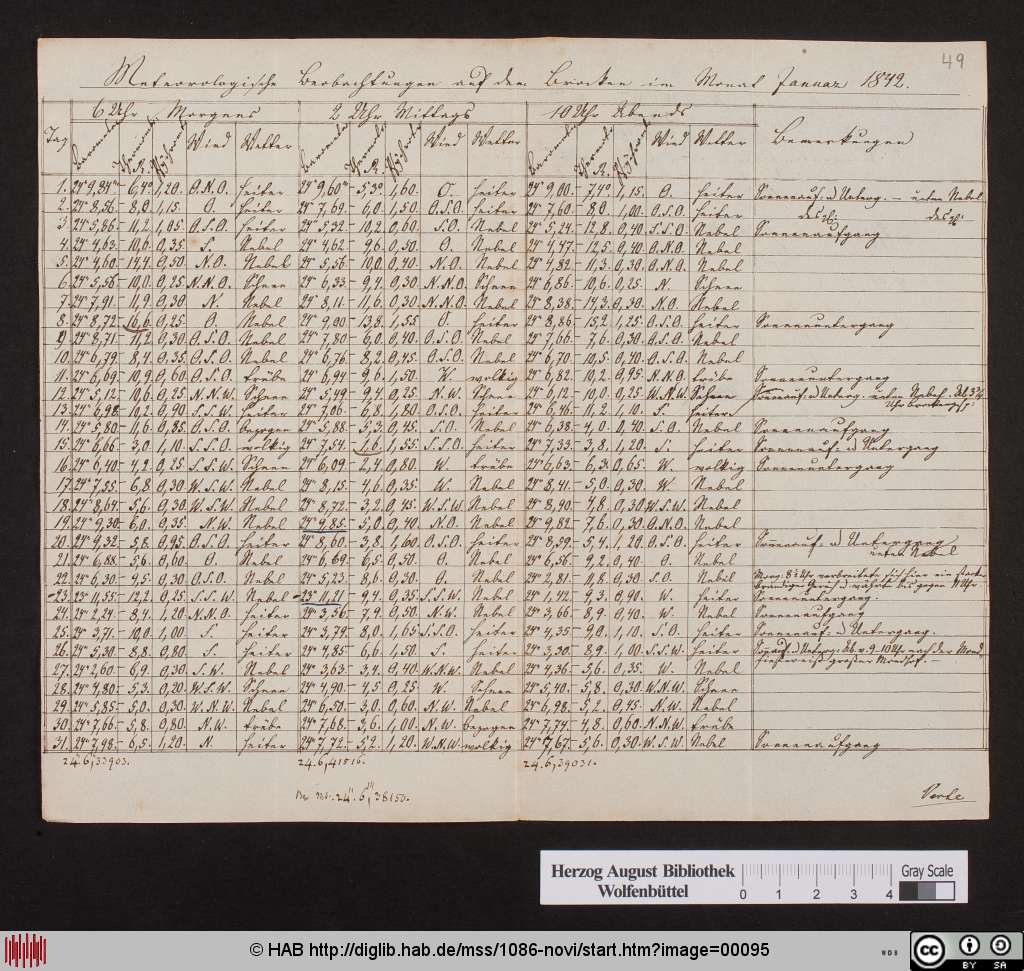 49
Meteorologische Beobachtungen auf dem Brocken im Monat Januar 1842.
6 Uhr Morgens 2 Uhr Mittags 10 Uhr Abends
Tag Wind Wetter Wind Wetter Wind Wetter Bemerkungen
1. 24" 9,84"' - 6,4° 1,20. O.N.O. heiter 24" 9,60"' - 5,3° 1,60 O. heiter 24" 9,00. - 7,4° 1,15. O. heiter Sonnenauf. u Unterg. - unten Nebel
2. 24" 8,56. - 8,0 1,15. O. heiter 24" 7,69. - 6,0 1,50. O.S.O. heiter 24" 7,60 - 8,0 1,00. O.S.O. heiter
3 24" 5,86 - 11,2 1,05. O.S.O. heiter 24" 5,32 - 10,2 0,60 S.O. Nebel 24" 5,24 - 12,8 0,40 S.S.O. Nebel Sonnenaufgang
4. 24" 4,63. - 10,6 0,35 S. Nebel 24" 4,62 - 9,6 0,50 O. Nebel 24" 4,47. - 12,5 0,40 O.N.O. Nebel
5. 24" 4,60 - 14,4 0,50. N.O. Nebel 24" 5,56 - 10,0 0,40. N.O. Nebel 24" 4,82 - 11,3 0,30 O.N.O. Nebel
6 24" 5,56 - 10,0 0,25 N.N.O. Schnee 24" 6,33 - 9,4 0,30 N.N.O. Schnee 24" 6,86 - 10,6 0,25 N. Schnee
7 24" 7,91. - 11,9 0,30 N. Nebel 24" 8,11 - 11,6 0,30 N.N.O. Nebel 24" 8,38 - 14,3 0,30. N.O. Nebel
8. 24" 8,72 - 16,6 0,25. O. Nebel 24" 9,00 - 13,8 1,55 O. heiter 24" 8,86 - 15,2 1,25 O.S.O. heiter Sonnenuntergang
9 24" 8,71. - 11,2 0,30 O.S.O. Nebel 24" 7,80 - 6,0 0,40 O.S.O. Nebel 24" 7,66 - 7,6 0,30 O.S.O. Nebel
10. 24" 6,79 - 8,4 0,35 O.S.O. Nebel 24" 6,76 - 8,2 0,45 O.S.O. Nebel 24" 6,70 - 10,5 0,40 O.S.O. Nebel
11. 24" 6,69 - 10,9 0,60 O.S.O. trübe 24" 6,94 - 9,6 1,50. W. wolkig 24" 6,82 - 10,2 0,95 N.N.O. trübe Sonnenuntergang
12 24" 5,12 - 10,6 0,25 N.N.W. Schnee 24" 5,49 - 9,4 0,25 N.W. Schnee 24" 6,12 - 10,0 0,25 W.N.W. Schnee
13 24" 6,98 - 10,2 0,90 S.S.W. heiter 24" 7,06 - 6,8 1,80 O.S.O. heiter 24" 6,46 - 11,2 1,10 S. heiter
14 24" 5,80 - 11,6 0,85 O.S.O. bezogen 24" 5,88 - 5,3 0,45 S.O. Nebel 24" 6,38 - 4,0 0,40 S.O. Nebel Sonnenaufgang
15. 24" 6,66 - 3,0 1,10 S.S.O. wolkig 24" 7,54 - 1,6 1,55 S.S.O. heiter 24" 7,33 - 3,8 1,20 S. heiter Sonnenauf- u Untergang
16 24" 6,40 - 4,2 0,25 S.S.W. Schnee 24" 6,09 - 2,4 0,80 W. trübe 24" 6,63 - 6,3 0,65 W. wolkig Sonnenuntergang
17 24" 7,55 - 6,8 0,30 W.S.W. Nebel 24" 8,15 - 4,6 0,35 W. Nebel 24" 8,41. - 5,0 0,30 W. Nebel
18 24" 8,64 - 5,6 0,30 W.S.W. Nebel 24" 8,72 - 3,2 0,45 W.S.W. Nebel 24" 8,90 - 4,8 0,30 W.S.W. Nebel
19. 24" 9,30 - 6,0 0,35. N.W. Nebel 24" 9,85 - 5,0 0,40 N.O. Nebel 24" 9,82 - 7,6 0,30 O.N.O. Nebel
20. 24" 9,32 - 5,8 0,95 O.S.O. heiter 24" 8,60 - 3,8 1,60 O.S.O. heiter 24" 8,59 - 5,4 1,20 O.S.O. heiter Sonnenauf- u Untergang
unten Nebel
21. 24" 6,88 - 5,6 0,60 O. Nebel 24" 6,69 - 6,5 0,50 O. Nebel 24" 6,56 - 9,2 0,40 O. Nebel
22 24" 6,30 - 9,5 0,30 O.S.O. Nebel 24" 5,23 - 8,6 0,30 O. Nebel 24" 2,81 - 11,8 0,30 S.O. Nebel
23 23" 11,55 - 12,2 0,25 S.S.W. Nebel 23" 11,21 - 9,4 0,35 S.S.W. Nebel 24" 1,42 - 9,3 0,90 W. heiter Sonnenuntergang.
24. 24" 2,24 - 8,4 1,20 N.N.O. heiter 24" 3,56 - 7,9 0,50 N.W. Nebel 24" 3,66 - 8,9 0,40 W. Nebel Sonnenaufgang
25. 24" 3,71. - 10,0 1,00 S. heiter 24" 3,79 - 8,0 1,65 S.S.O. heiter 24" 4,35 - 9,0 1,10. S.O. heiter Sonnenauf- u Untergang.
26. 24" 5,30 - 8,8 0,80 S. heiter 24" 4,85 - 6,6 1,50 S. heiter 24" 3,30 - 8,9 1,00 S.S.W. heiter
27. 24" 2,60 - 6,9 0,30 S.W. Nebel 24" 3,63 - 3,4 0,40 W.N.W. Nebel 24" 4,36 - 5,6 0,35 W. Nebel
28. 24" 4,80 - 5,3 0,20 W.S.W. Schnee 24" 4,90 - 4,5 0,25 W. Schnee 24" 5,40 - 5,8 0,30 W.N.W. Schnee
29 24" 5,85 - 5,0 0,30 W.N.W. Nebel 24" 6,50 - 3,0 0,60 N.W. Nebel 24" 6,98 - 5,2 0,45 N.W. Nebel
30 24" 7,66 - 5,8 0,80 N.W. trübe 24" 7,68 - 3,6 1,00 N.W. bezogen 24" 7,74 - 4,8 0,60 N.N.W. trübe
31. 24" 7,98 - 6,5 1,20. N. heiter 24" 7,72 - 5,2 1,20 W.N.W. wolkig 24" 7,67 - 5,6 0,30 W.S.W. Nebel Sonnenaufgang
24.6,33903. 24.6,41516. 24.6,39031.
24". 6"',38150.
Herzog August Bibliothek
Wolfenbüttel
0 1 2 3 4
Gray Scale
© HAB http://diglib.hab.de/mss/1086-novi/start.htm?image=00095
WDB
cc BY SA